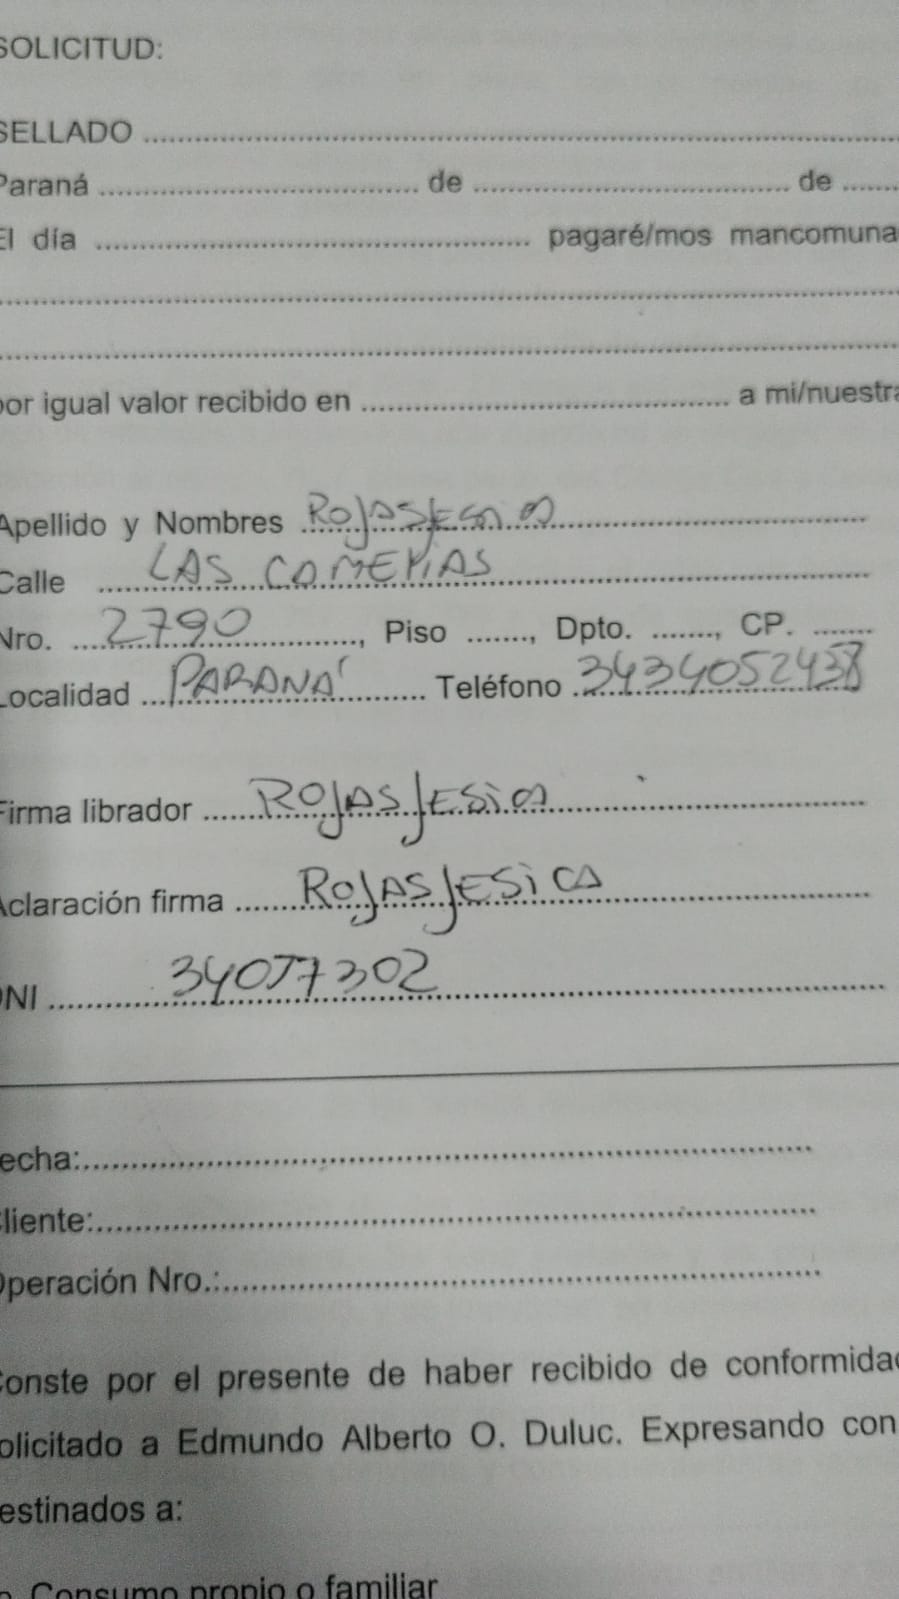 SOLICITUD:
SELLADO ........................................
Paraná .................... de .................... de .......
El día .................... pagaré/mos mancomuna
........................................
........................................
por igual valor recibido en .................... a mi/nuestra
Apellido y Nombres ROJAS JESICA
Calle LAS
Nro. 2790, Piso ......., Dpto. ......., CP. .......
Localidad PARANÁ Teléfono
Firma librador ROJAS JESICA
Aclaración firma ROJAS JESICA
DNI
echa:........................................
Cliente:........................................
Operación Nro.:........................................
Conste por el presente de haber recibido de conformidad
olicitado a Edmundo Alberto O. Duluc. Expresando con
estinados a:
Consumo propio o familiar